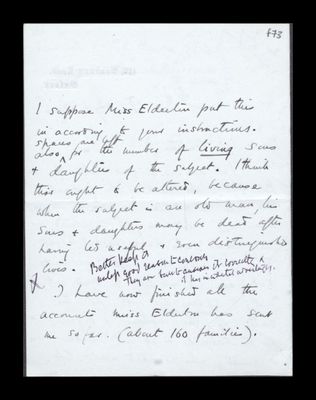 f73
I suppose Miss Elderton put this
in according to your instructions.
spaces are left
also, for the number of living sons
& daughters of the subject. I think
this ought to be altered, because
when the subject is an old man his
sons & daughters may be dead after
having led useful & even distinguished
lives. Better keep it
unless good reason to contrary
they are
I have now finished all the
accounts Miss Elderton has sent
me so far. (about 160 families).